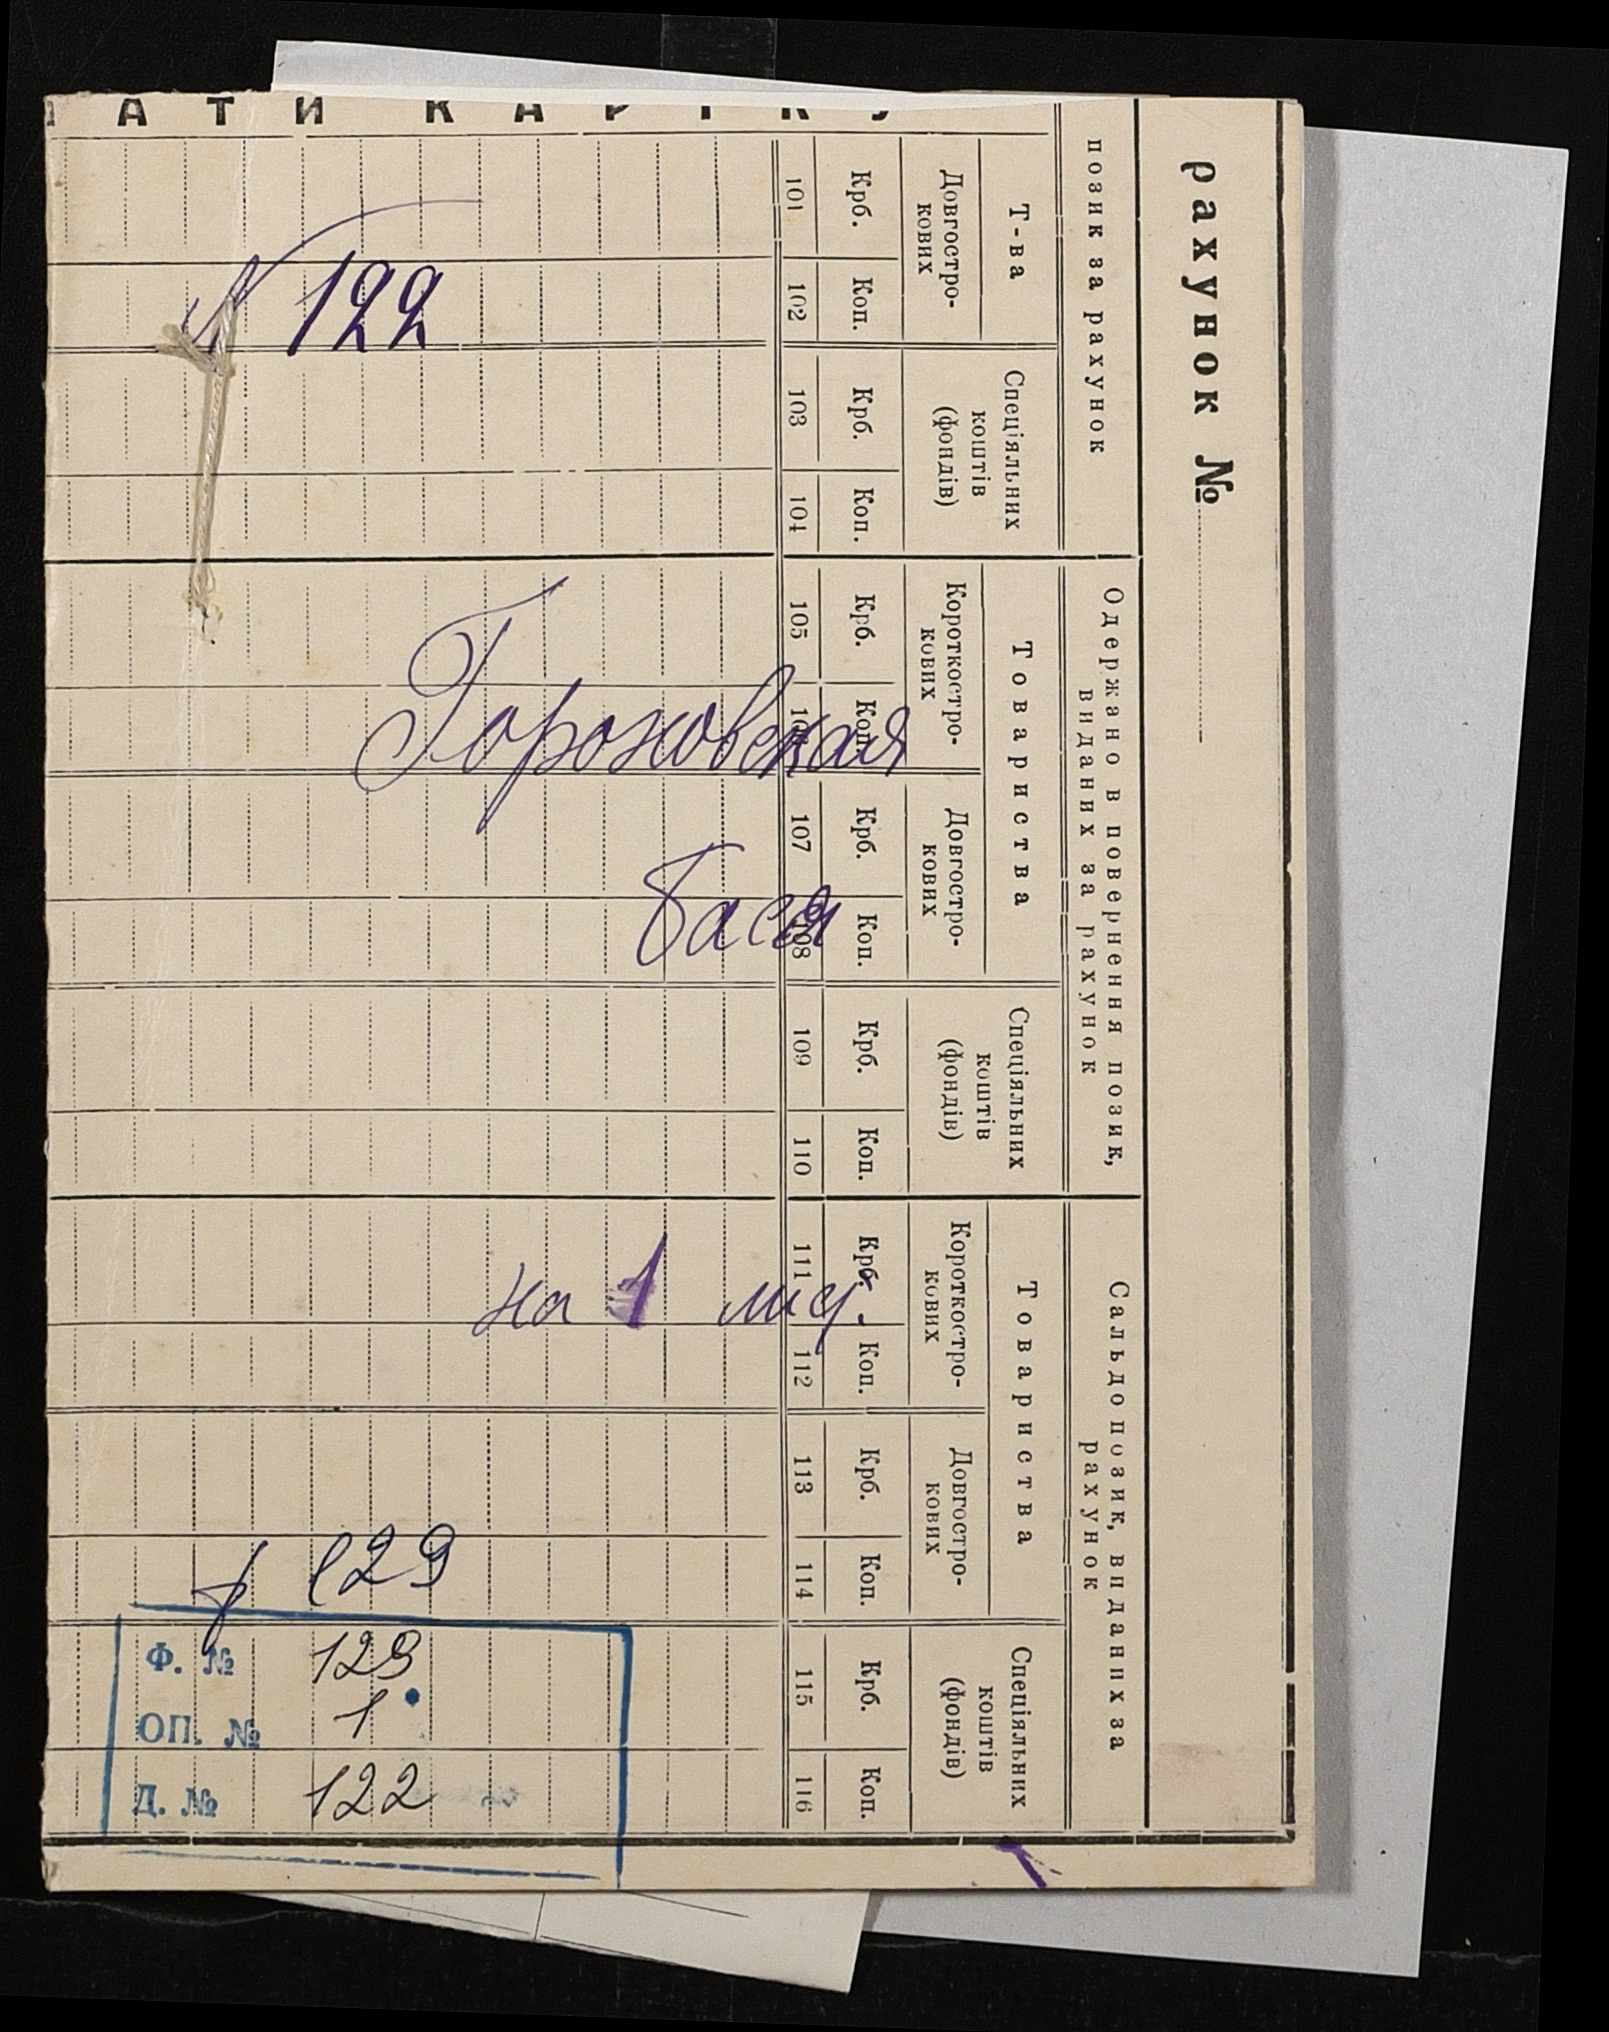 АТИ КАРТКУ
рахунок №
позик за рахунок
Т-ва
Довгостро-
кових
Спеціяльних
коштів
(фондів)
Крб. Коп. Крб. Коп.
101 102 103 104
Одержано в повернення позик,
виданих за рахунок
Товариства
Короткостро-
кових
Довгостро-
кових
Спеціяльних
коштів
(фондів)
Крб. Коп. Крб. Коп. Крб. Коп.
105 106 107 108 109 110
Сальдо позик, виданих за
рахунок
Товариства
Короткостро-
кових
Довгостро-
кових
Спеціяльних
коштів
(фондів)
Крб. Коп. Крб. Коп. Крб. Коп.
111 112 113 114 115 116
N 122
Гороховская
Бася
на 1 лис.
ф 129
Ф. № 129
ОП. № 1
Д. № 122